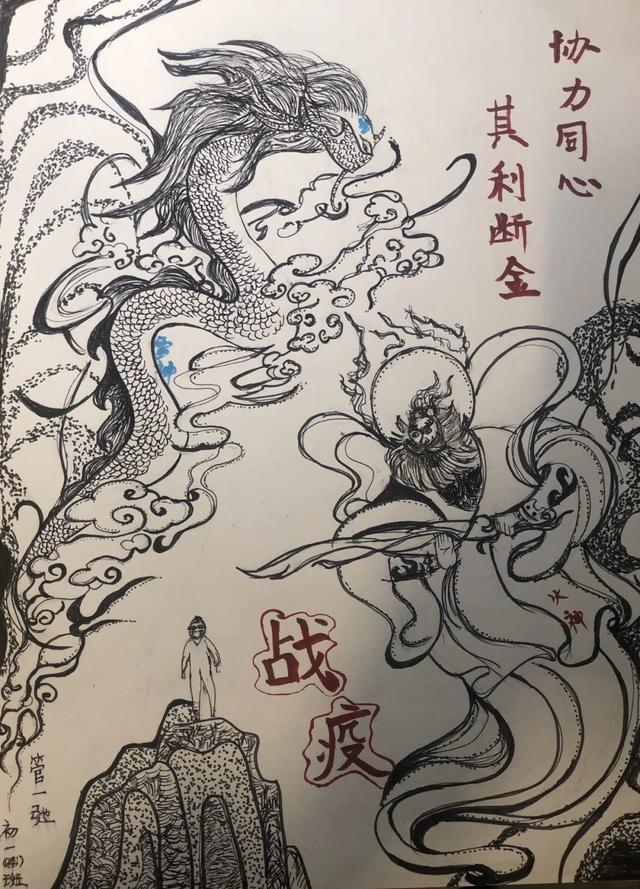 协力同心
其利断金
火神
战疫
管一弛
初一(四)班